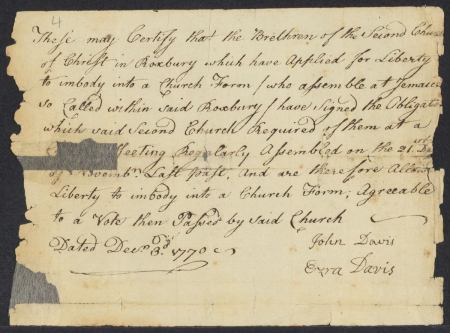 4
These may Certify that the Brethren of the Second Chur
of Christ in Roxbury which have Applied for Liberty
to imbody into a Church Form / who assemble at Jemaic
so Called within said Roxbury / have Signed the Obligat
which said Second Church Required of them at a
Meeting Regularly Assembled on the 21st Da
of Novembr. Last past, And are therefore Allow
Liberty to imbody into a Church Form; Agreeable
to a Vote then Passed by said Church
Dated Decr. 3d. 1770
John Davis
Ezra Davis